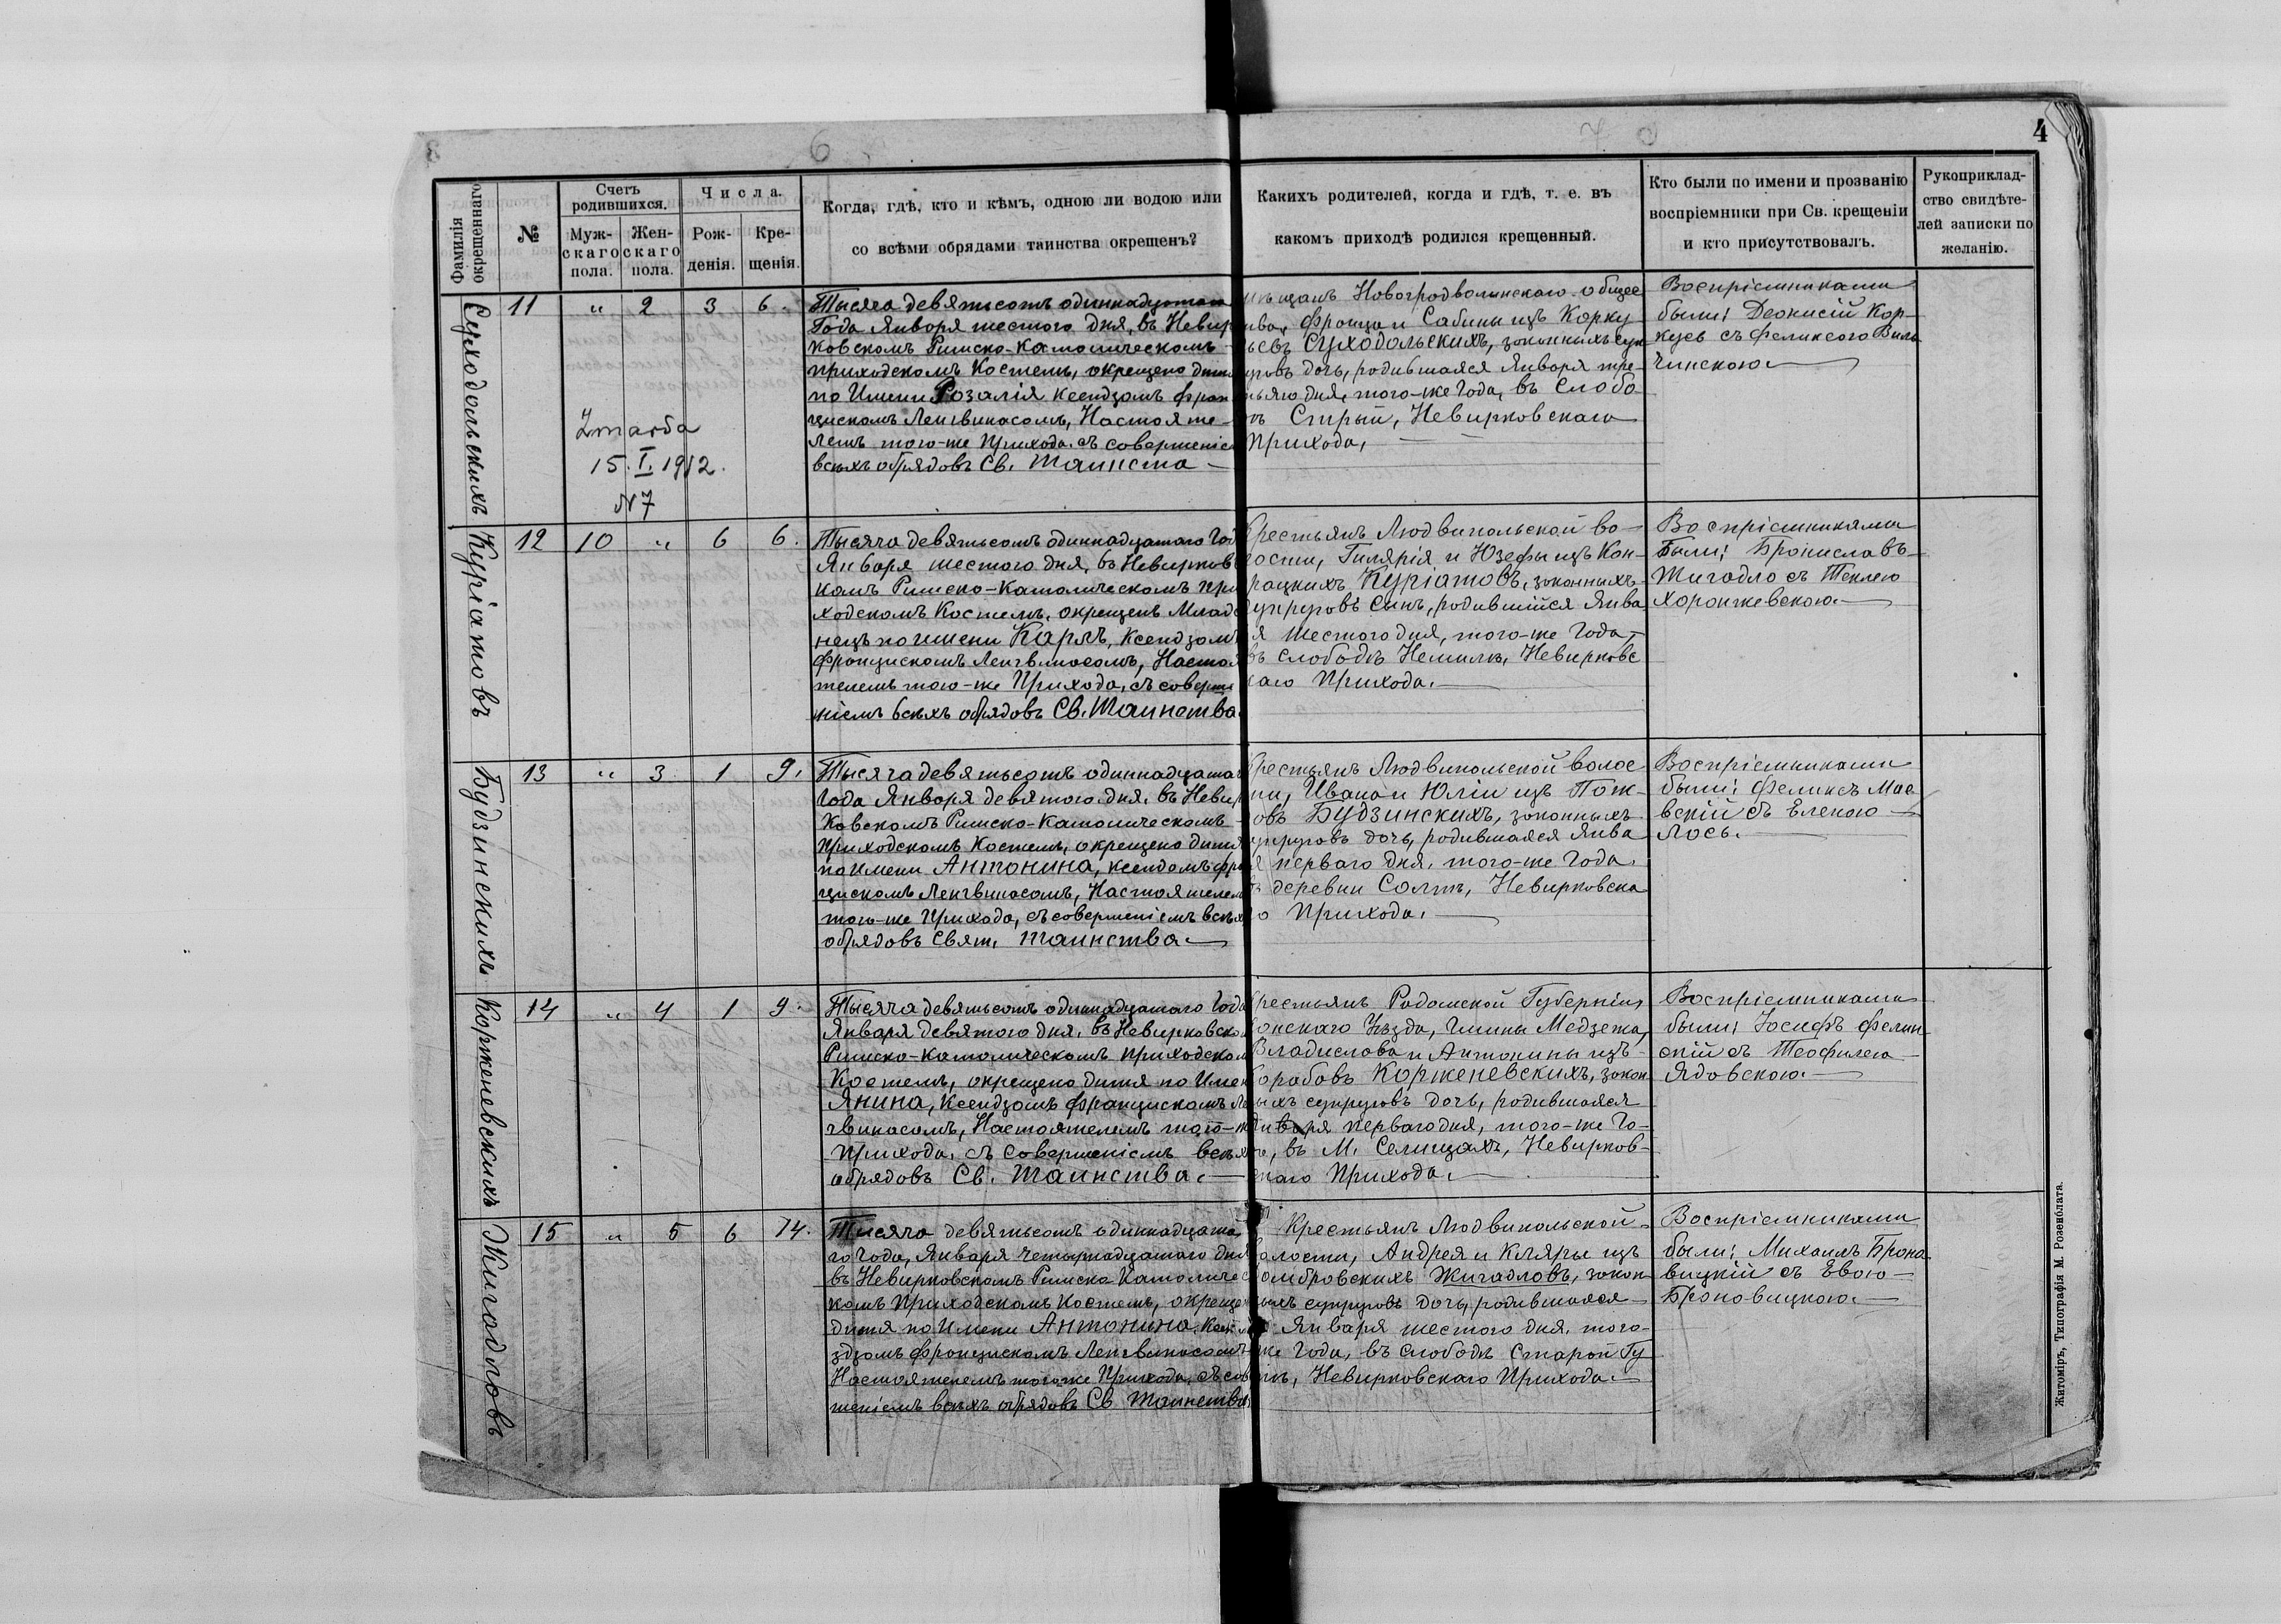 6
7
4
Фамилія окрещеннаго
№
Счетъ родившихся.
Муж-скаго пола.
Жен-скаго пола.
Числа.
Рож-денія.
Кре-щенія.
Когда, гдѣ, кто и кѣмъ, одною ли водою или
со всѣми обрядами таинства окрещенъ?
Какихъ родителей, когда и гдѣ, т. е. въ
какомъ приходѣ родился крещенный.
Кто были по имени и прозванію
воспріемники при Св. крещеніи
и кто присутствовалъ.
Рукоприклад-
ство свидѣте-
лей записки по
желанію.
Суходольскихъ
11 " 2 3 6.
Zmarła
15.I.1912.
N7
Тысяча девятьсотъ одиннадцатаго
Года Января шестого дня, въ Невир
ковскомъ Римско-Католическомъ
приходскомъ Костелѣ, окрещено дитя
по Имени Розалія Ксендзомъ Фран
цискомъ Ленгвинасомъ, Настояте-
лемъ того-же Прихода съ совершеніе
всѣхъ обрядовъ Св. Таинста
мѣщанъ Новоградволынскаго общес
тва, Франца и Сабины изъ Корку
цевъ Суходольскихъ, законныхъ суп
руговъ дочь, родившаяся Января тре-
тьяго дня, того-же Года, въ Слобо
дѣ Стрый, Невирковскаго
Прихода,
Воспріемниками
были: Деонисій Кор-
куць съ Феликсою Виль
чинскою
Куріатовъ
12 10 " 6 6.
Тысяча девятьсотъ одиннадцатаго Год
Января шестого дня, въ Невирковс
комъ Римско-Католическомъ При
ходскомъ Костелѣ, окрещенъ Младе
нецъ по имени Карлъ, Ксендзомъ
Францискомъ Ленгвинасомъ, Настоя
телемъ того-же Прихода, съ соверше
ніемъ всѣхъ обрядовъ Св. Таинства
Крестьянъ Людвипольской во-
лости, Гилярія и Юзефы изъ Кон-
рацкихъ Куріатовъ, законныхъ
супруговъ сынъ, родившійся Янва
ря шестого дня, того-же Года,
въ слободѣ Немиль, Невирковс
каго Прихода.
Воспріемниками
Были: Брониславъ
Жигадло съ Теклею
Хоронжевскою.
Будзинскихъ
13 " 3 1 9.
Тысяча девятьсотъ одиннадцатаг
Года Января девятого дня, въ Невир
ковскомъ Римско-Католическомъ
приходскомъ Костелѣ, окрещено дитя
по Имени Антонина, Ксендзомъ Фран
цискомъ Ленгвинасомъ, Настоятелем
того-же Прихода, съ совершеніемъ всѣх
обрядовъ Свят. Таинства
Крестьянъ Людвипольской волос
ти, Ивана и Юліи изъ Пож-
овъ Будзинскихъ, законныхъ
супруговъ дочь, родившаяся Янва
ря перваго дня, того-же Года
въ деревни Солтъ, Невирковска
го Прихода.
Воспріемниками
были: Феликсъ Мос
вскій съ Еленою
Лось.
Корженевскихъ
14 " 4 1 9.
Тысяча девятьсотъ одиннадцатаго Года
Января девятого дня, въ Невирковско
Римско-Католическомъ приходском
Костелѣ, окрещено дитя по Имени
Янина, Ксендзомъ Францискомъ Ле
гвинасомъ, Настоятелемъ того-ж
Прихода, съ совершеніемъ всѣх
обрядовъ Св. Таинства.
Крестьянъ Радомской Губерніи,
онскаго Уѣзда, Гмины Медзежа,
Владислава и Антонины изъ
Корабовъ Корженевскихъ, закон
ныхъ супруговъ дочь, родившаяся
Января перваго дня, того-же Го-
да, въ М. Селищахъ, Невирков-
скаго Прихода.
Воспріемниками
были: Іосифъ Фелин
скій съ Теофилею
Ядовскою.
Жигадловъ
15 " 5 6 14.
Тысяча девятьсотъ одиннадцата
го Года, Января четырнадцатаго дня
въ Невирковскомъ Римско Католичес
комъ Приходскомъ Костелѣ, окреще
дитя по Имени Антонина, Ксен
здзомъ Францискомъ Ленгвинасомъ
Настоятелемъ того же Прихода, съ сов
шеніемъ всѣхъ обрядовъ Св Таинства
Крестьянъ Людвипольской
волости, Андрея и Кляры изъ
Домбровскихъ Жигадловъ, закон
ныхъ супруговъ дочь, родившаяся
Января шестого дня, того-
же Года, въ слободѣ Старой Гу
тѣ, Невирковскаго Прихода.
Воспріемниками
были: МихаилъБроно
вицкій съ Евою
Броновицкою.
Житоміръ, Типографія М. Розенблата.